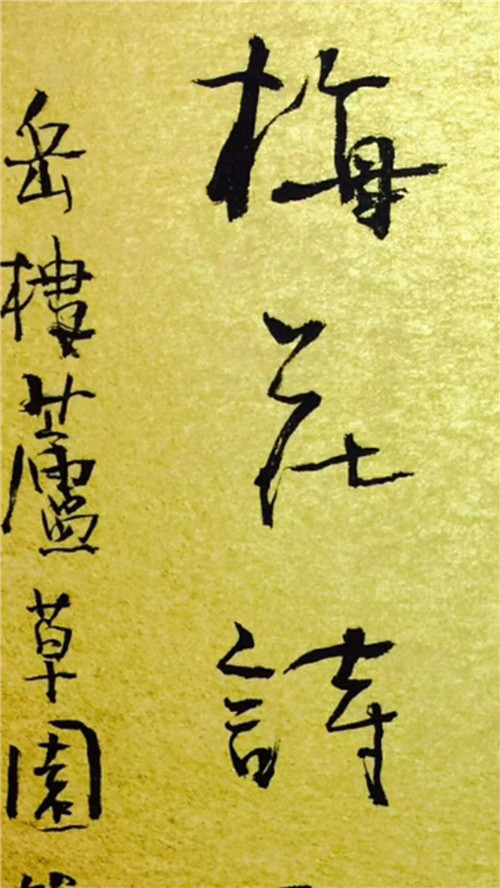 梅花詩
岳樓蘆草園